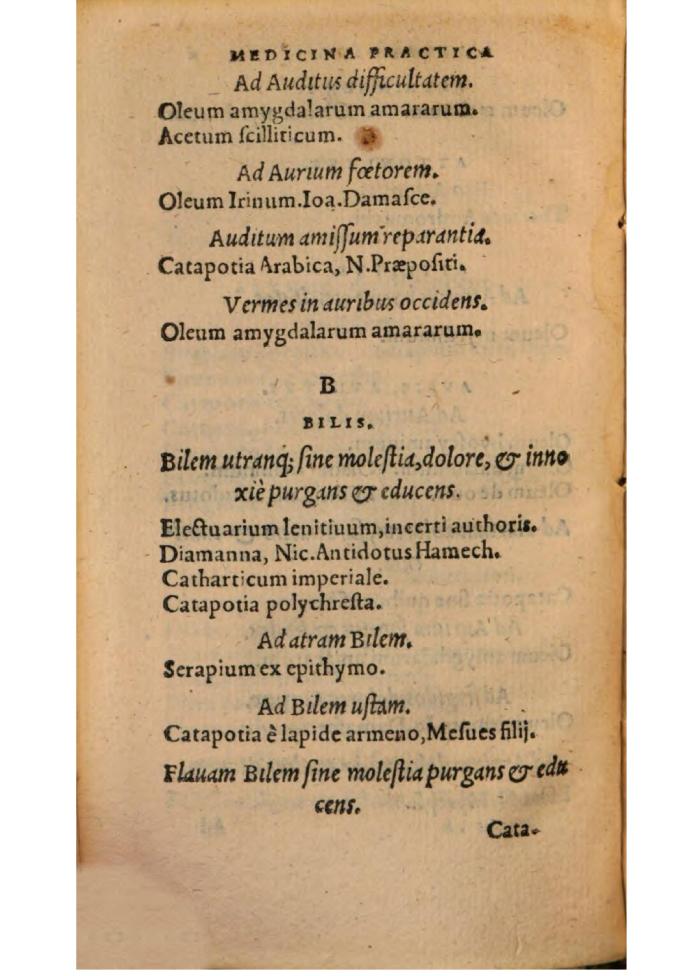 MEDICINA PRACTICA
Ad Auditus difficultatem.
Oleum amygdalarum amararum.
Acetum ſcilliticum.
Ad Aurium fœtorem.
Oleum Irinum.Ioa.Damaſce.
Auditum amiſſum reparantia.
Catapotia Arabica, N.Præpoſiti.
Vermes in auribus occidens.
Oleum amygdalarum amararum.
B
BILIS.
Bilem utranq; ſine moleſtia,dolore, & inno
xiè purgans & educens.
Electuarium lenitiuum,incerti authoris.
Diamanna, Nic.Antidotus Hamech.
Catharticum imperiale.
Catapotia polychreſta.
Ad atram Bilem.
Serapium ex epithymo.
Ad Bilem uſtam.
Catapotia è lapide armeno,Meſues filij.
Flauam Bilem ſine moleſtia purgans & edu
cens.
Cata-